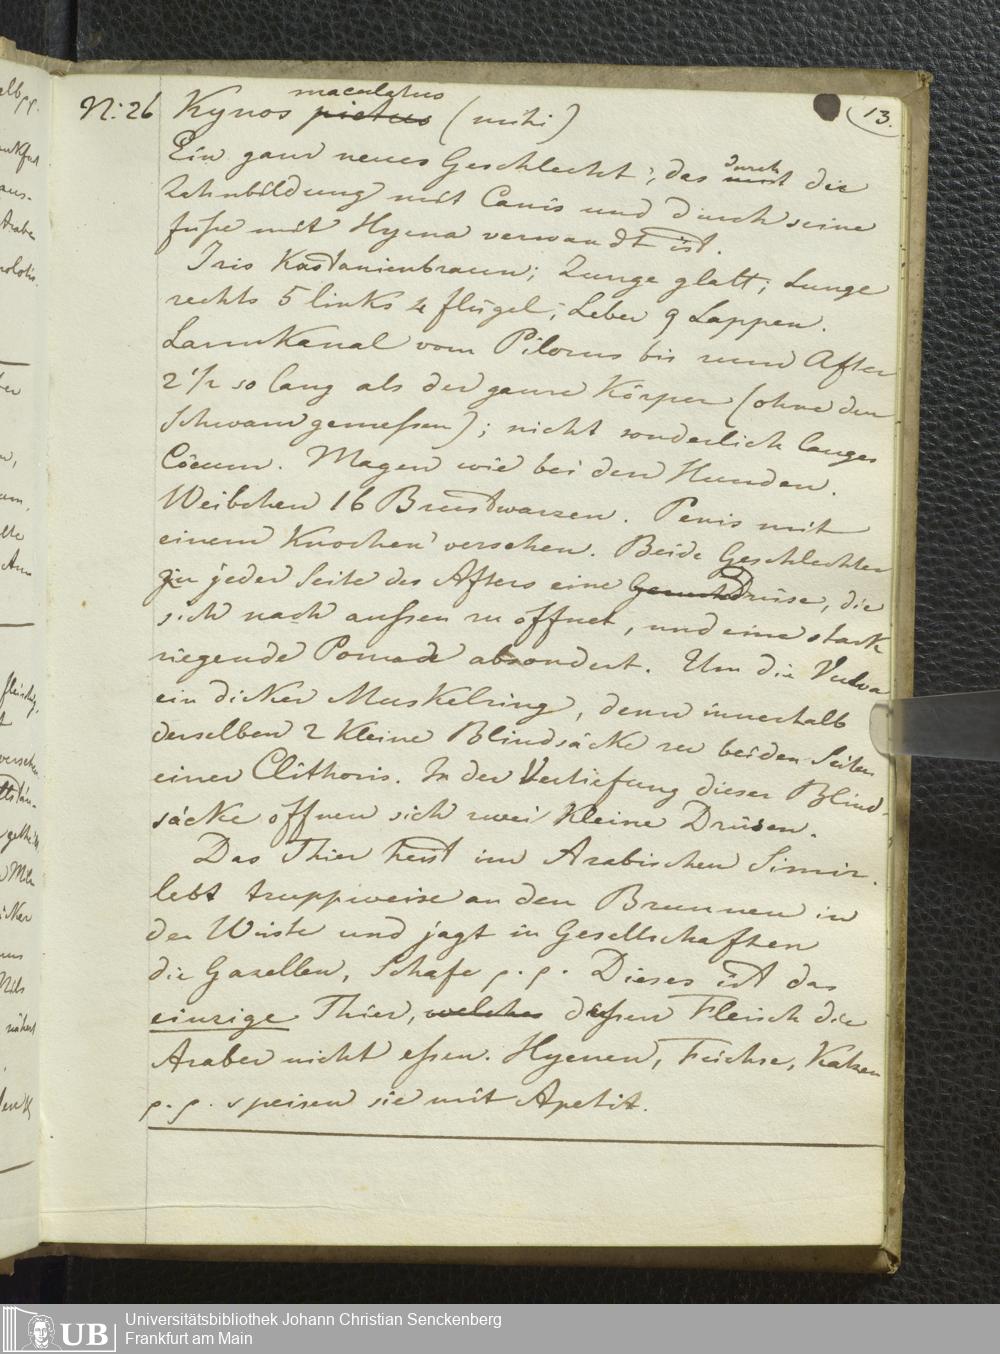 13.
N: 26 Kynos pictus maculatus (mihi)
Ein ganz neues Geschlecht; das mit durch die
Zehnbildung mit Canis und durch seine
fuße mit Hyena verwandt ist.
Iris Kastanienbraun; Zunge glatt; Lunge
rechts 5 links 4 flügel; Leber 9 Lappen.
Darmkanal vom Pilorus bis zum After
2 1/2 so lang als der ganze Körper (ohne den
Schwanz gemeßen); nicht sonderlich langes
Cöcum. Magen wie bei den Hunden.
Weibchen 16 Brustwarzen. Penis mit
einem Knochen versehen. Beide Geschlechter
zu jeder Seite des Afters eine Geruch Drüse, die
sich nach außen zu öffnet, und eine stark
riegende Pomade absondert. Um die Vulva
ein dicker Muskelring, denn innerhalb
derselben 2 kleine Blindsäcke zu beiden Seiten
einer Clithoris. In der Vertiefung dieser Blind-
säcke öffnen sich zwei kleine Drüsen.
Das Thier heist im Arabischen Simir.
lebt truppweise an den Brunnen in
der Wüste und jagt in Gesellschaften
die Gazellen, Schafe p. p. Dieses ist das
einzige Thier, welches deßen Fleisch die
Araber nicht eßen. Hyenen, Füchse, Katzen
p. p. speisen sie mit Apetit.
UB
Universitätsbibliothek Johann Christian Senckenberg
Frankfurt am Main